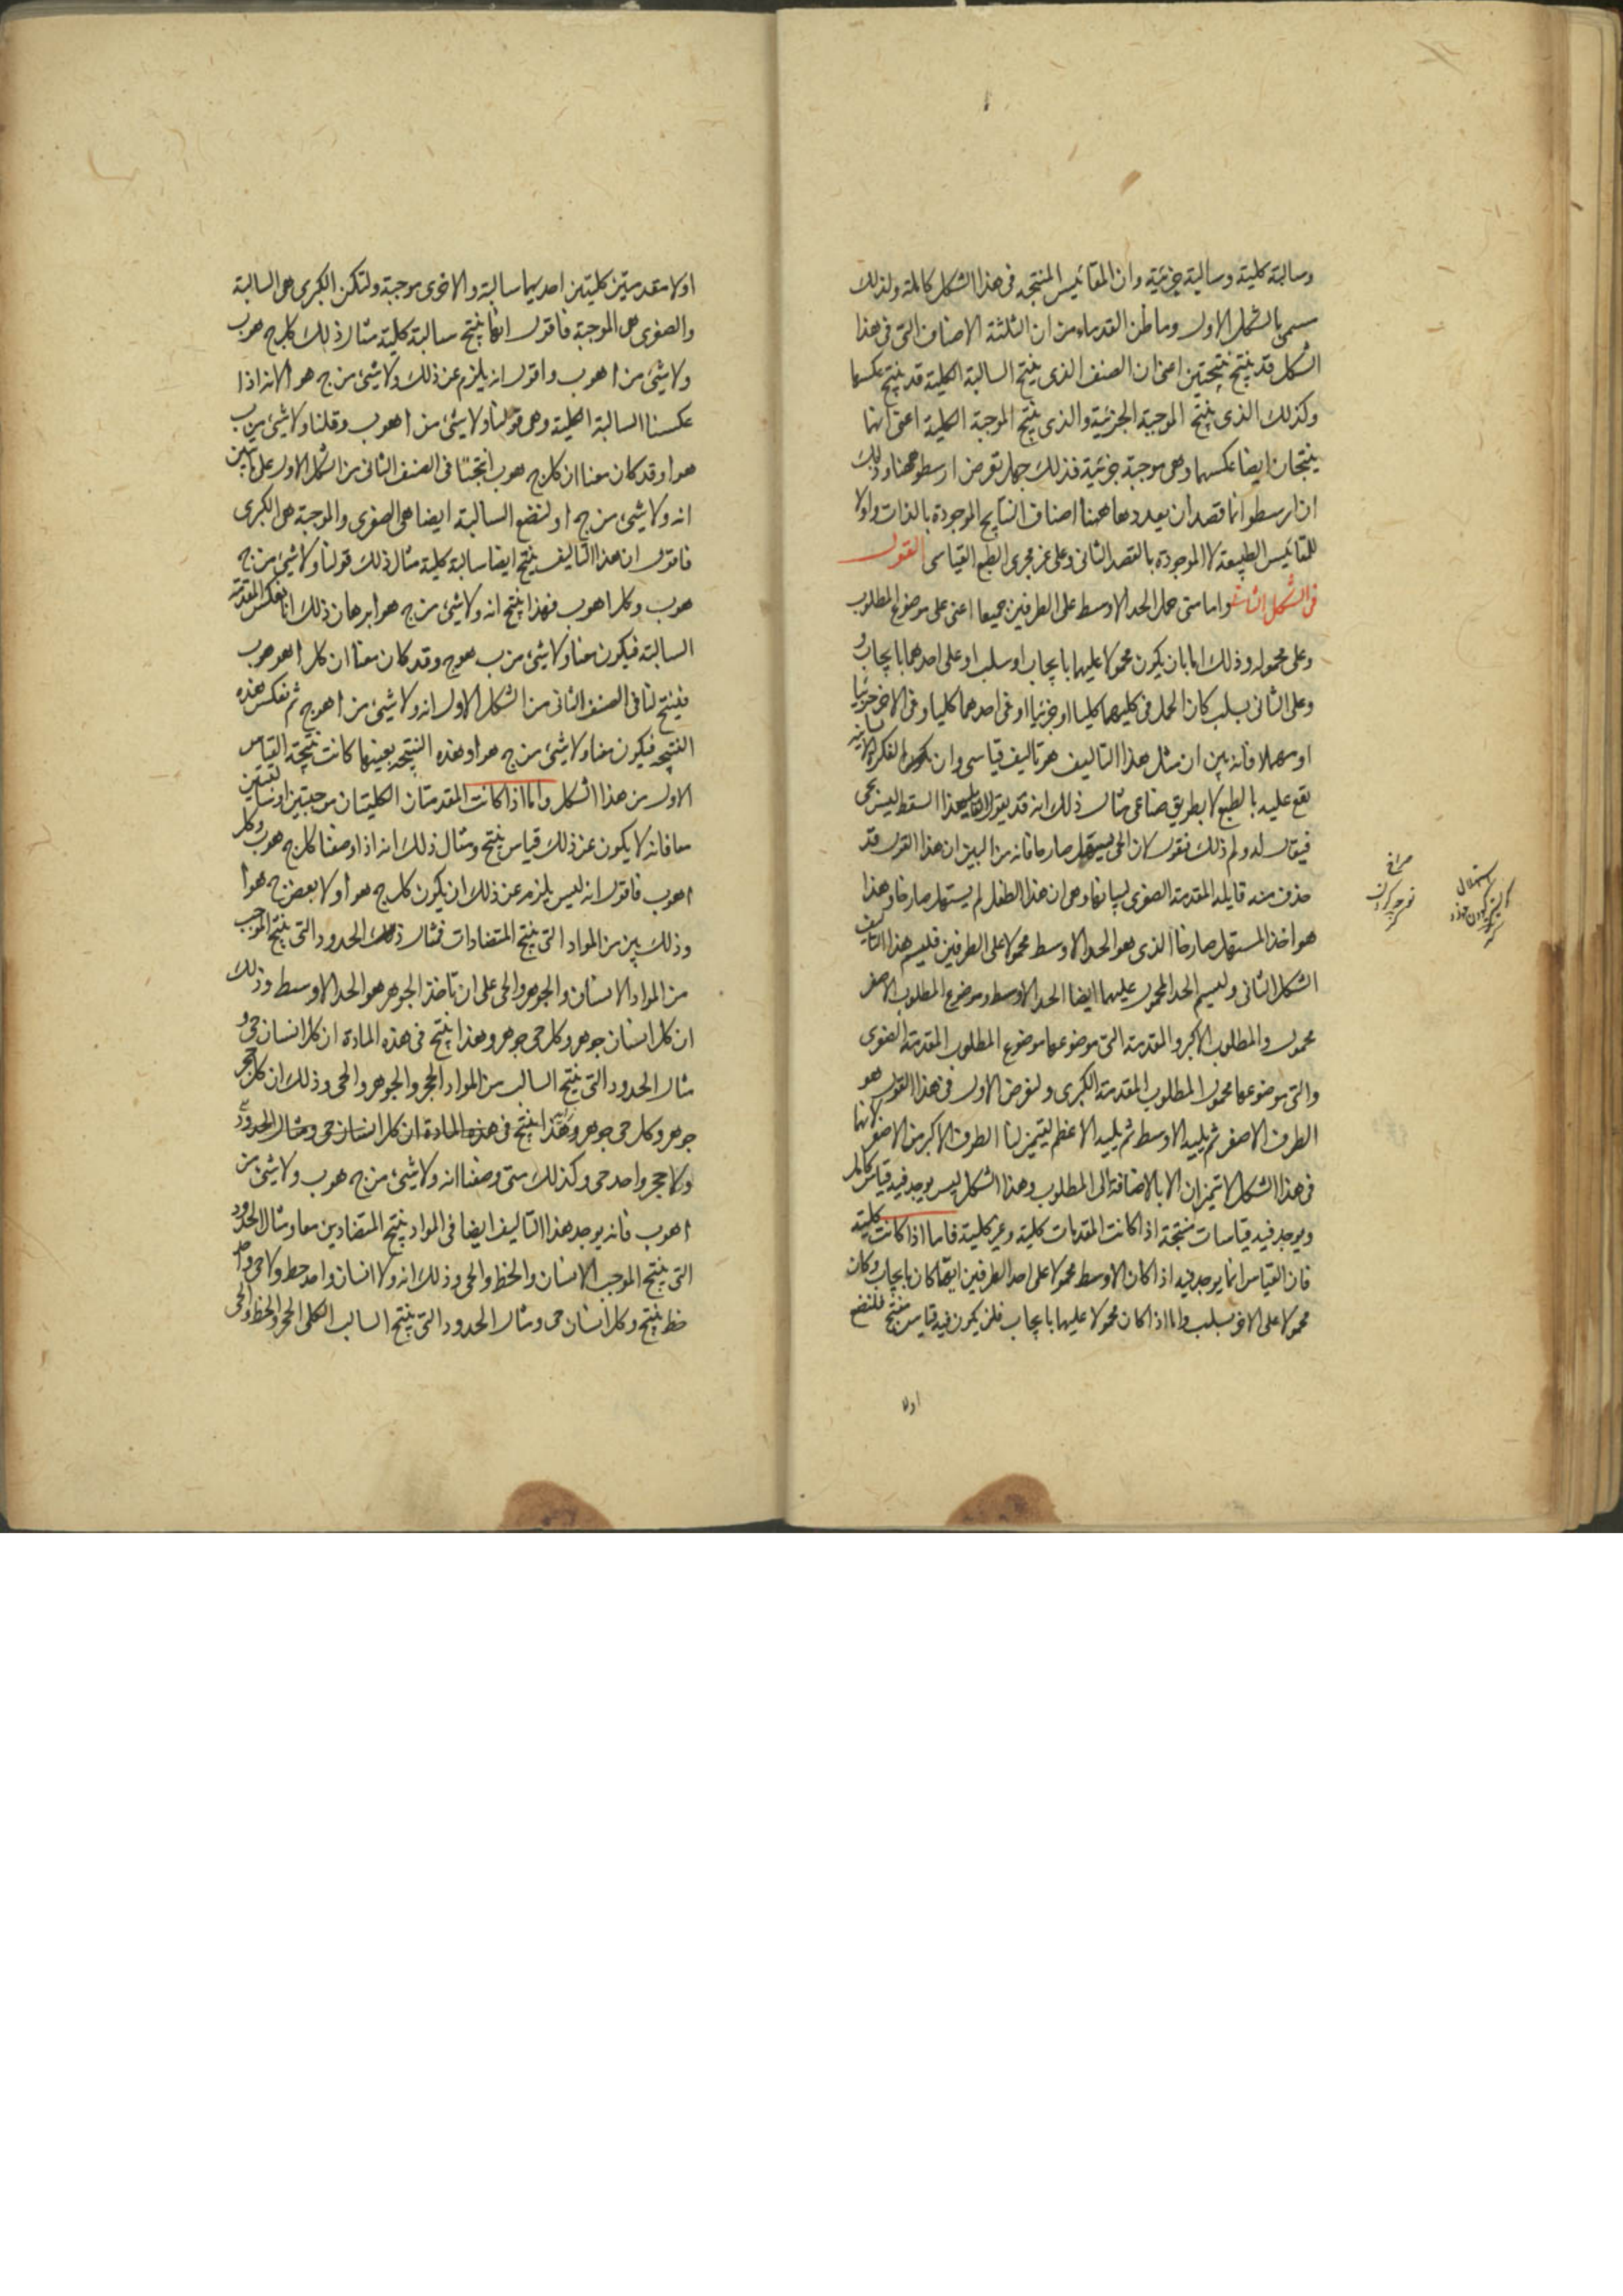 وسالبة كلية وسالبة جزئية وان المقائيس المنتجه فى هذا الشكل كاملة ولذلك
سمى بالشكل الاول وما ظن القدماء من ان الثلثة الاصناف التى فى هذا
الشكل قد ينتج نتيجتين اعنى ان الصنف الذى ينتج السالبة الكلية قد ينتج عكسها
وكذلك الذى ينتج الموجبة الجزئية والذى ينتج الموجبة الكلية اعنى انهما
ينتجان ايضا عكسهما وهى موجبة جزئية فذلك جهل بغرض ارسطو ههنا وذلك
ان ارسطو انما قصد ان يعدد هاهنا اصناف النتايج الموجودة بالذات واولا
للمقائيس الطبيعة لا الموجودة بالقصد الثانى وعلى غير مجرى الطبع القياسى القول
فى الشكل الثانى واما متى حمل الحد الاوسط على الطرفين جميعا اعنى على موضوع المطلوب
وعلى محموله وذلك اما بان يكون محمولا عليهما بايجاب او سلب او على احدهما بايجاب و
وعلى الثانى بسلب كان الحمل فى كليهما كليا او جزئيا او فى احدهما كليا وفى الاخر جزئيا
او مهملا فانه بين ان مثل هذا التاليف هو تاليف قياسى وان الفكرة الانسانية
يقع عليه بالطبع لا بطريق صناعى مثال ذلك انه قد يقول القايل هذا السقط ليس بحى
فيقال له ولم ذلك فيقول لان الحى يستهل صارخا فانه من البين ان هذا القول قد
حذف منه قايله المقدمة الصغرى لبيانها وهى ان هذا الطفل لم يستهل صارخا وهذا
هو اخذ المستهل صارخا الذى هو الحد الاوسط محمولا على الطرفين فليسم هذا التاليف
الشكل الثانى وليسم الحد المحمول عليهما ايضا الحد الاوسط وموضوع المطلوب الاصغر
محمول والمطلوب الاكبر والمقدمة التى موضوعها موضوع المطلوب المقدمة الصغرى
والتى موضوعها محمول المطلوب المقدمة الكبرى ولنفرض الاول فى هذا القول هو
الطرف الاصغر ثم يليه الاوسط ثم يليه الاعظم ليتميز لنا الطرف الاكبر من الاصغر لانهما
فى هذا الشكل لا تميزان الا بالاضافة الى المطلوب وهذا الشكل ليس يوجد فيه قياس كامل
ويوجد فيه قياسات منتجة اذا كانت المقدمات كلية وغير كلية فاما اذا كانت كلية
فان القياس انما يوجد فيه اذا كان الاوسط محمولا على احد الطرفين ايهما كان بايجاب وكان
محمولا على الاخر بسلب واما اذا كان محمولا عليهما بايجاب فلن يكون فيه قياس منتج فلنضع
اولا
اولا مقدمتين كليتين احديهما سالبة والاخرى موجبة ولتكن الكبرى هى السالبة
والصغرى هى الموجبة فاقول انها ينتج سالبة كلية مثال ذلك كل ج هو ب
ولا شىء من ا هو ب واقول انه يلزم عن ذلك ولا شىء من ج هو ا لانه اذا
عكسنا السالبة الكلية وهى قولنا ولا شىء من ا هو ب وقلنا ولا شىء من ب
هو ا وقد كان معنا ان كل ج هو ب انتج لنا فى الصنف الثانى من الشكل الاول على ما تبين
انه ولا شىء من ج ا ولنضع السالبة ايضا هى الصغرى والموجبة هى الكبرى
فاقول ان هذا التاليف ينتج ايضا سالبة كلية مثال ذلك قولنا ولا شىء من ج
هو ب وكل ا هو ب فهذا ينتج انه ولا شىء من ج هو ا برهان ذلك انا نعكس المقدمة
السالبة فيكون معنا ولا شىء من ب هو ج وقد كان معنا ان كل ا هو ب
فينتج لنا فى الصنف الثانى من الشكل الاول انه ولا شىء من ا هو ج ثم نعكس هذه
النتيجه فيكون معنا ولا شىء من ج هو ا وهذه النتيجه بعينها كانت نتيجة القياس
الاول من هذا الشكل واما اذا كانت المقدمتان الكليتان موجبتين او سالبتين
معا فانه لا يكون عن ذلك قياس ينتج ومثال ذلك انه اذا وضعنا كل ج هو ب وكل
ا هو ب فاقول انه ليس يلزم عن ذلك ان يكون كل ج هو ا ولا بعض ج هو ا
وذلك يبين من المواد التى ينتج المتضادات فمثال ذلك الحدود التى ينتج الموجب
من المواد الانسان والجوهر والحى على ان تاخذ الجوهر هو الحد الاوسط وذلك
ان كل انسان جوهر وكل حى جوهر وهذا ينتج فى هذه المادة ان كل انسان حى و
مثال الحدود التى ينتج السالب من المواد الحجر والجوهر والحى وذلك ان كل حجر
جوهر وكل حى جوهر وهذا ينتج فى هذه المادة ان كل انسان حى ومثال الحدود
ولا حجر واحد حى وكذلك متى وضعنا انه ولا شىء من ج هو ب ولا شىء من
ا هو ب فانه يوجد هذا التاليف ايضا فى المواد ينتج المتضادين معا ومثال الحدود
التى ينتج الموجب الانسان والخط والحى وذلك انه ولا انسان واحد خط ولا حى واحد
خط ينتج وكل انسان حى ومثال الحدود التى ينتج السالب الكلى الحجر والخط والحى